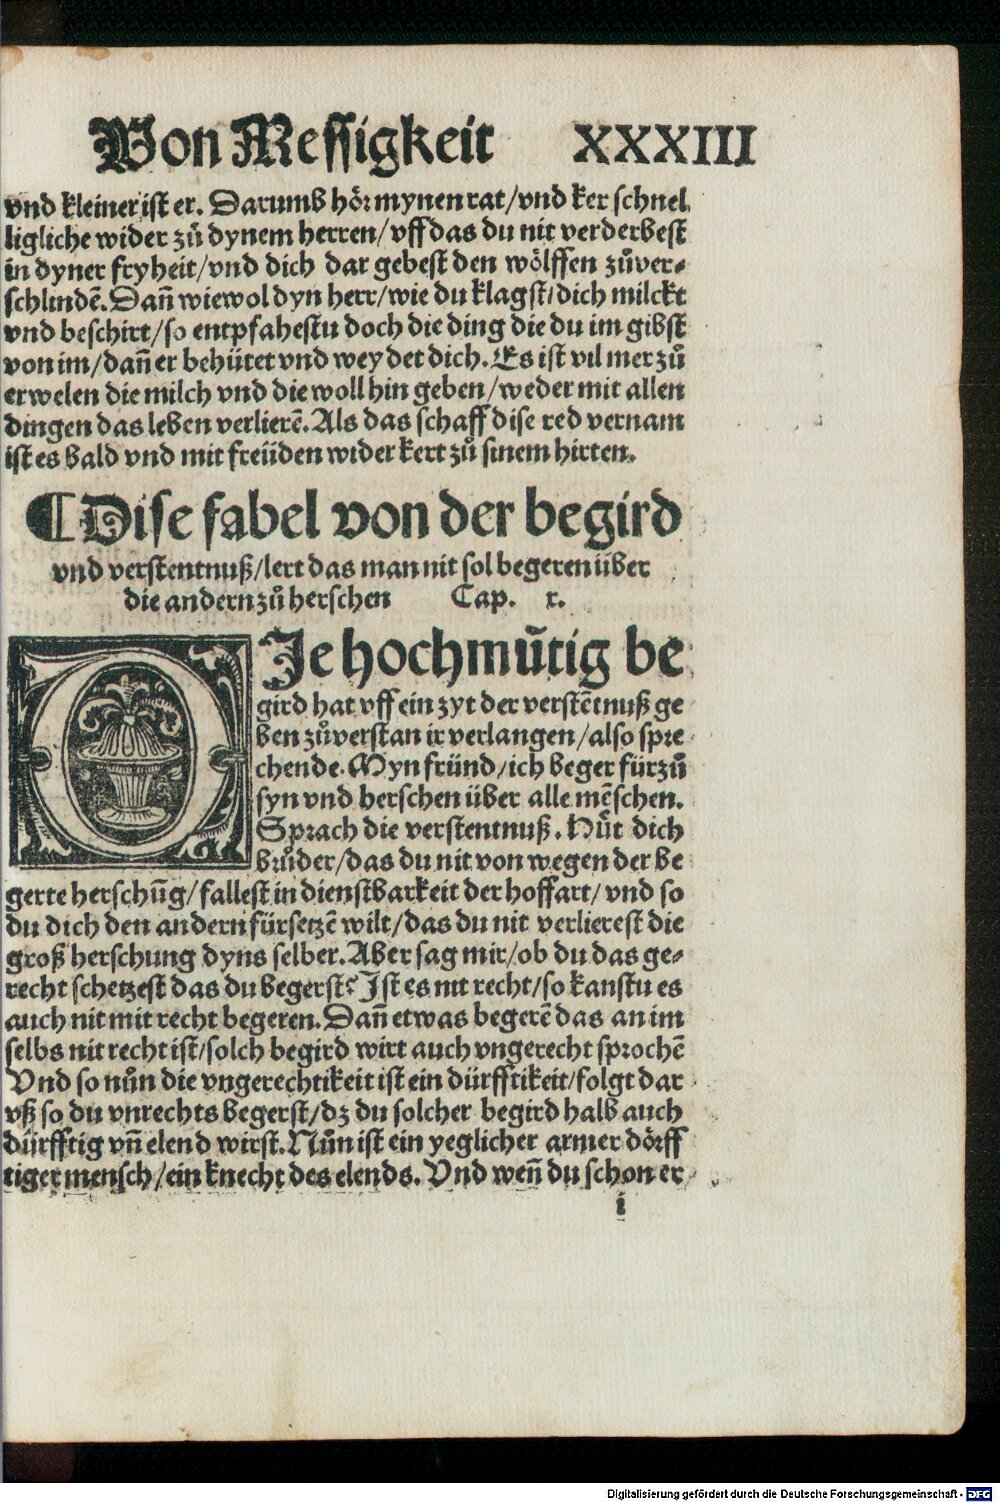 Von Messigkeit XXXIII
vnd kleiner ist er. Darumb hör mynen rat/vnd ker schnel
ligliche wider zů dynem herren/vff das du nit verderbest
in dyner fryheit/vnd dich dar gebest den wölffen zůver-
schlindē. Dañ wiewol dyn herr/wie du klagst/dich milckt
vnd beschirt/so entpfahestu doch die ding die du im gibst
von im/dañ er behütet vnd weydet dich. Es ist vil mer zů
erwelen die milch vnd die woll hin geben/weder mit allen
dingen das leben verlierē. Als das schaff dise red vernam
ist es bald vnd mit freüden wider kert zů sinem hirten.
¶ Dise fabel von der begird
vnd verstentnuß/lert das man nit sol begeren über
die andern zů herschen Cap. x.
DJe hochmůtig be
gird hat vff ein zyt der verstētnuß ge
ben zůverstan ir verlangen/also spre
chende. Myn fründ/ich beger fürzů
syn vnd herschen über alle mēschen.
Sprach die verstentnuß. Hůt dich
brůder/das du nit von wegen der be
gerte herschūg/fallest in dienstbarkeit der hoffart/vnd so
du dich den andern fürsetzē wilt/das du nit verlierest die
groß herschung dyns selber. Aber sag mir/ob du das ge-
recht schetzest das du begerst? Jst es nit recht/so kanstu es
auch nit mit recht begeren. Dañ etwas begerē das an im
selbs nit recht ist/solch begird wirt auch vngerecht sprochē
Vnd so nůn die vngerechtikeit ist ein dürfftikeit/folgt dar
vß so du vnrechts begerst/dz du solcher begird halb auch
dürfftig vñ elend wirst. Nůn ist ein yeglicher armer dörff
tiger mensch/ein knecht des elends. Vnd weñ du schon er
i
Digitalisierung gefördert durch die Deutsche Forschungsgemeinschaft - DFG